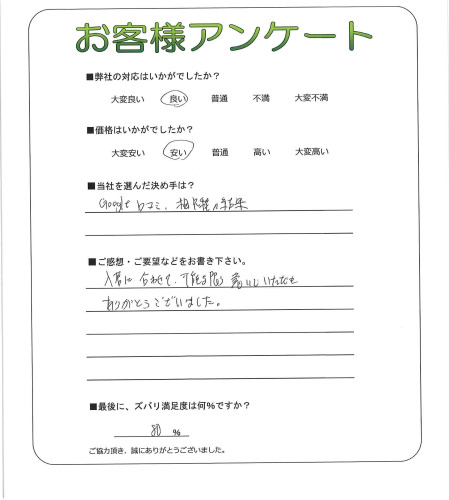 お客様アンケート
■弊社の対応はいかがでしたか?
大変良い 良い 普通 不満 大変不満
■価格はいかがでしたか?
大変安い 安い 普通 高い 大変高い
■当社を選んだ決め手は?
Google 口コミ、相見積の結果
■ご感想・ご要望などをお書き下さい。
に合わせて、可能な限り いただき
ありがとうございました。
■最後に、ズバリ満足度は何%ですか?
80 %
ご協力頂き、誠にありがとうございました。